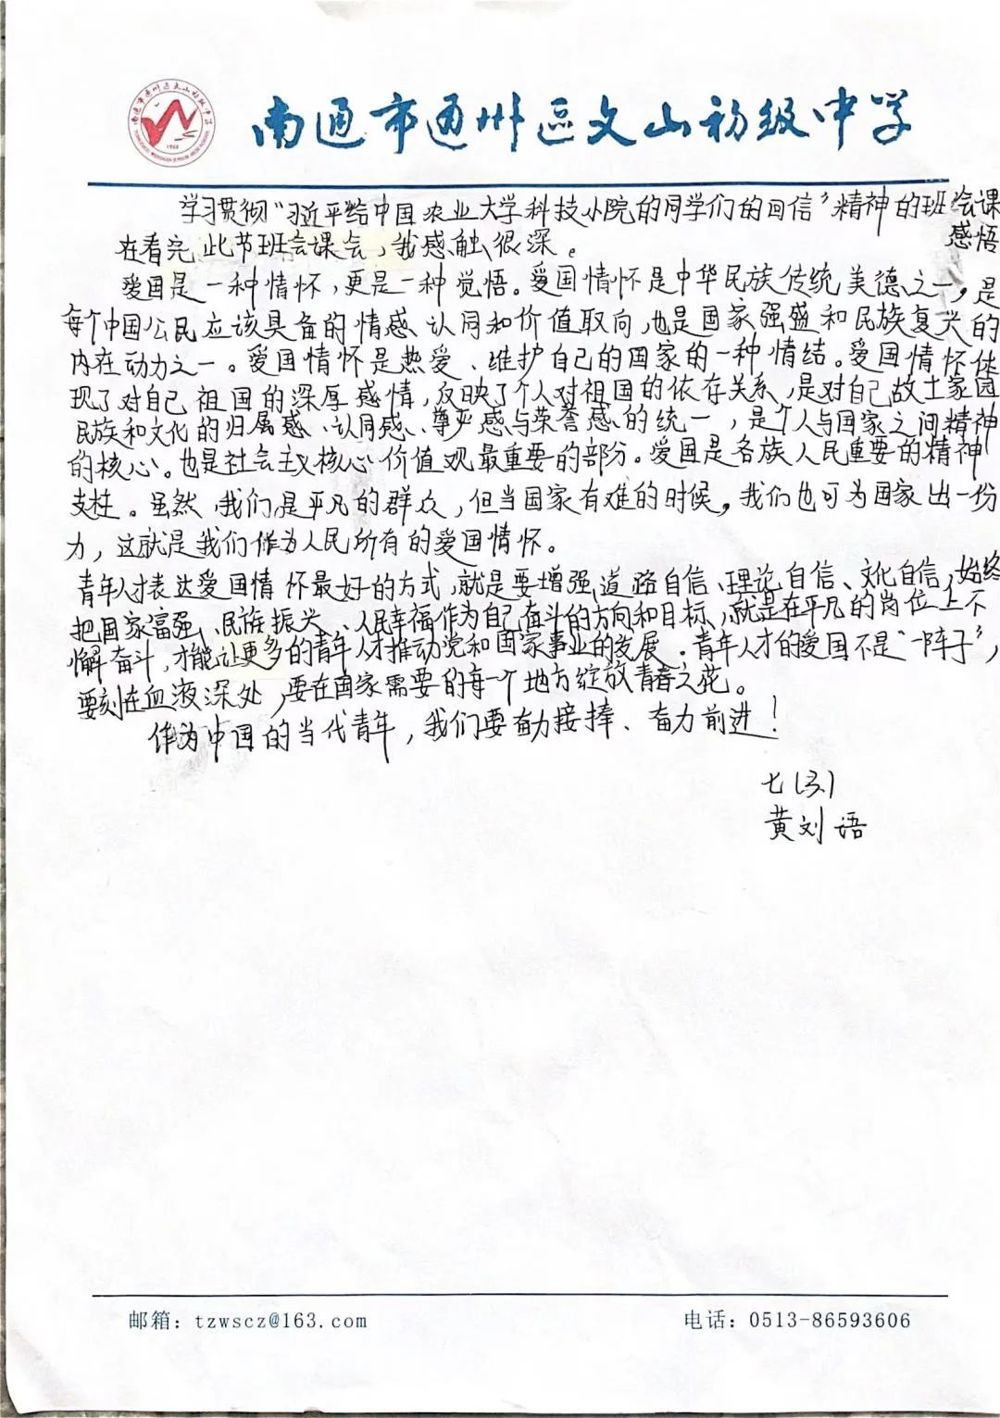 南通市通州区文山初级中学
学习贯彻“习近平给中国农业大学科技小院的同学们的回信”精神的班会课
感悟
在看完此节班会课会,我感触很深。
爱国是一种情怀,更是一种觉悟。爱国情怀是中华民族传统美德之一,是
每个中国公民应该具备的情感、认同和价值取向,也是国家强盛和民族复兴的
内在动力之一。爱国情怀是热爱、维护自己的国家的一种情结。爱国情怀体
现了对自己祖国的深厚感情,反映了个人对祖国的依存关系,是对自己故土家园
民族和文化的归属感、认同感、尊严感与荣誉感的统一,是个人与国家之间精神
的核心。也是社会主义核心价值观最重要的部分。爱国是各族人民重要的精神
支柱。虽然,我们是平凡的群众,但当国家有难的时候,我们也可为国家出一份
力,这就是我们作为人民所有的爱国情怀。
青年人才表达爱国情怀最好的方式,就是要增强道路自信、理论自信、文化自信,始终
把国家富强、民族振兴、人民幸福作为自己奋斗的方向和目标,就是在平凡的岗位上不
懈奋斗,才能让更多的青年人才推动党和国家事业的发展。青年人才的爱国不是“一阵子”,
要刻在血液深处,要在国家需要的每一个地方绽放青春之花。
作为中国的当代青年,我们要奋力接捧、奋力前进!
七(3)
黄刘语
邮箱:tzwscz@163.com
电话:0513-86593606